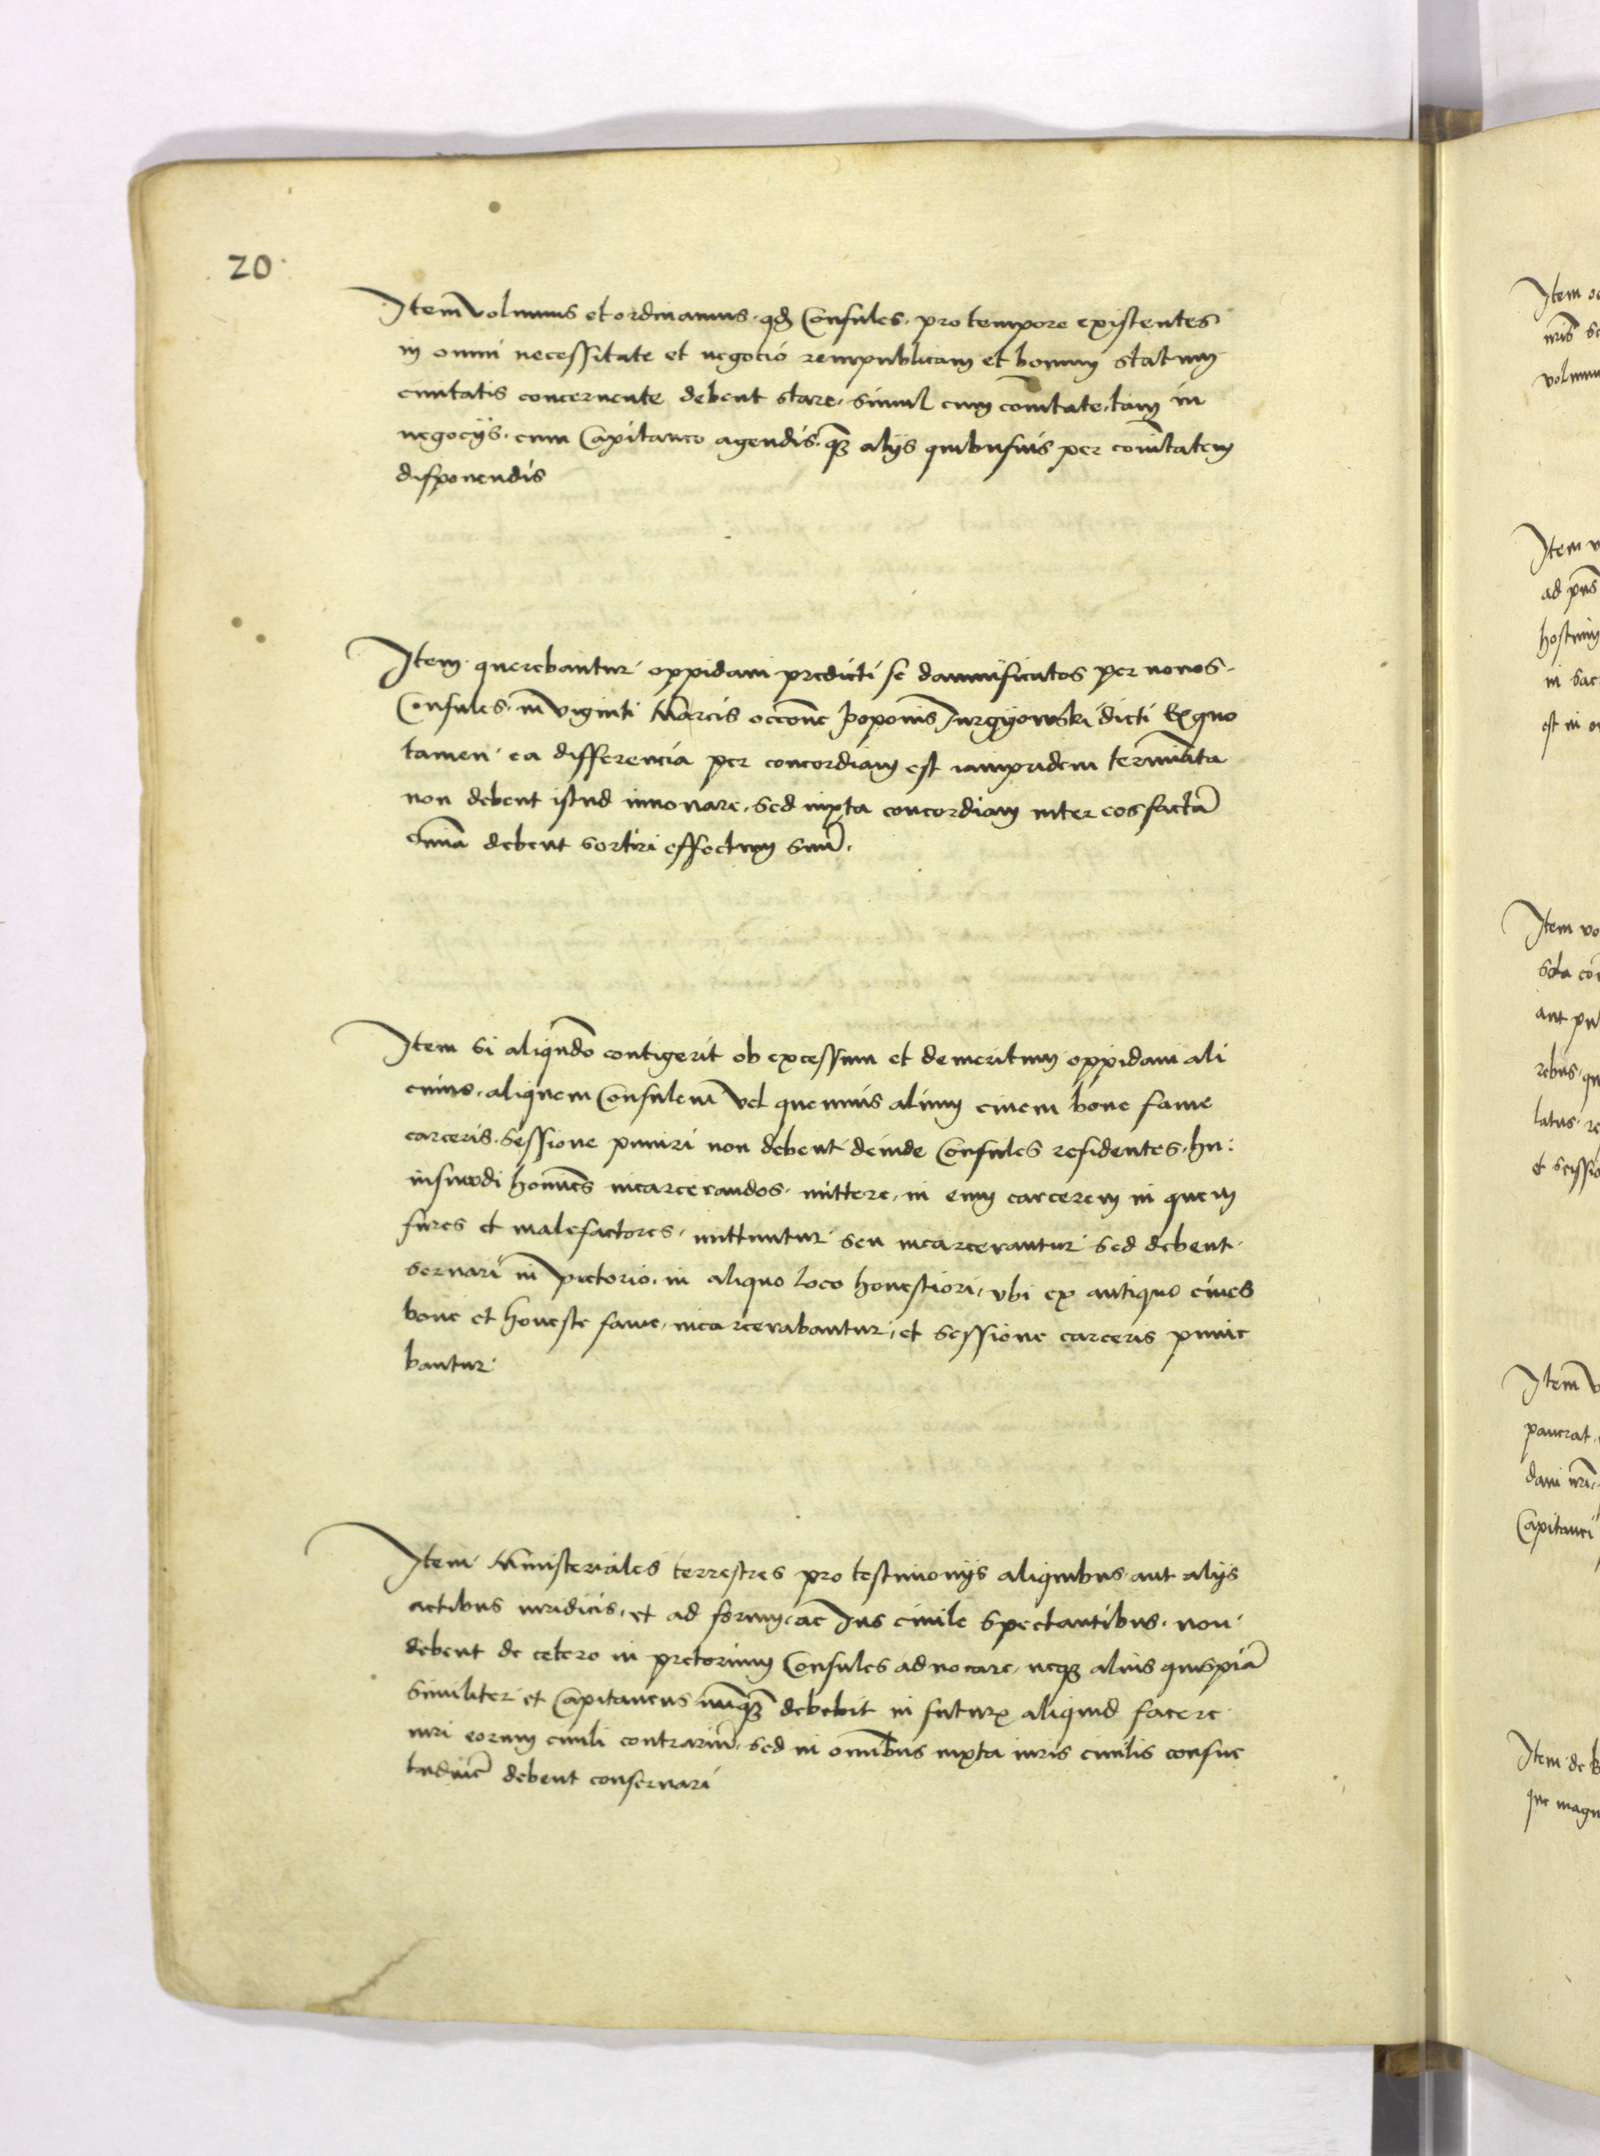 20
Item volumus et ordinamus · qd Consules · pro tempore existentes
in omni necessitate et negotio rempublicam et bonum statum
ciuitatis concernente debent stare · simul cum comitate · tam in
negocijs · cum Capitaneo agendis · qz alijs quibusuis per comitatem
disponendis
Item querebantur oppidani predicti se damnificatos per nouos ·
Consules · in viginti Marcis occone Poponis Jurgyowski dicti Ex quo
tamen ea differencia per concordiam est iampridem terminata
non debent istud innouare · sed iuxta concordiam inter eos facta
omnia debent sortiri effectum suu ·
Item si aliqndo contigerit ob excessum et demeritum oppidani ali
cuius · aliquem Consulem vel quemuis alium ciuem bone fame
carceris · sessione puniri non debent deinde Consules residentes · hu:
iusmodi homines incarcerandos · mittere · in eum carcerem in quem
fures et malefactores · mittuntur seu incarcerantur sed debent ·
seruari in pretorio · in aliquo loco honestiori · vbi ex antiquo ciues
bone et honeste fame · incarcerabantur · et sessione carceris punie
bantur
Item Ministeriales terrestres pro testimonijs aliquibus aut alijs
actibus iuridicis · et ad forum · ac Jus ciuile spectantibus · non
debent de cetero in pretorium Consules aduocare · neqz alius quispia
Similiter et Capitaneus nuqz debebit in futurx aliquid facere
iuri eorum ciuili contrariu · sed in omnibus iuxta iuris ciuilis consue
tudine debent conseruari
Item
Item
ad pns
hostium
in
est in
Item vo
aut
rebus · qu
latus · re
et
Item
dani nri
Capitanei
Item de
que magn